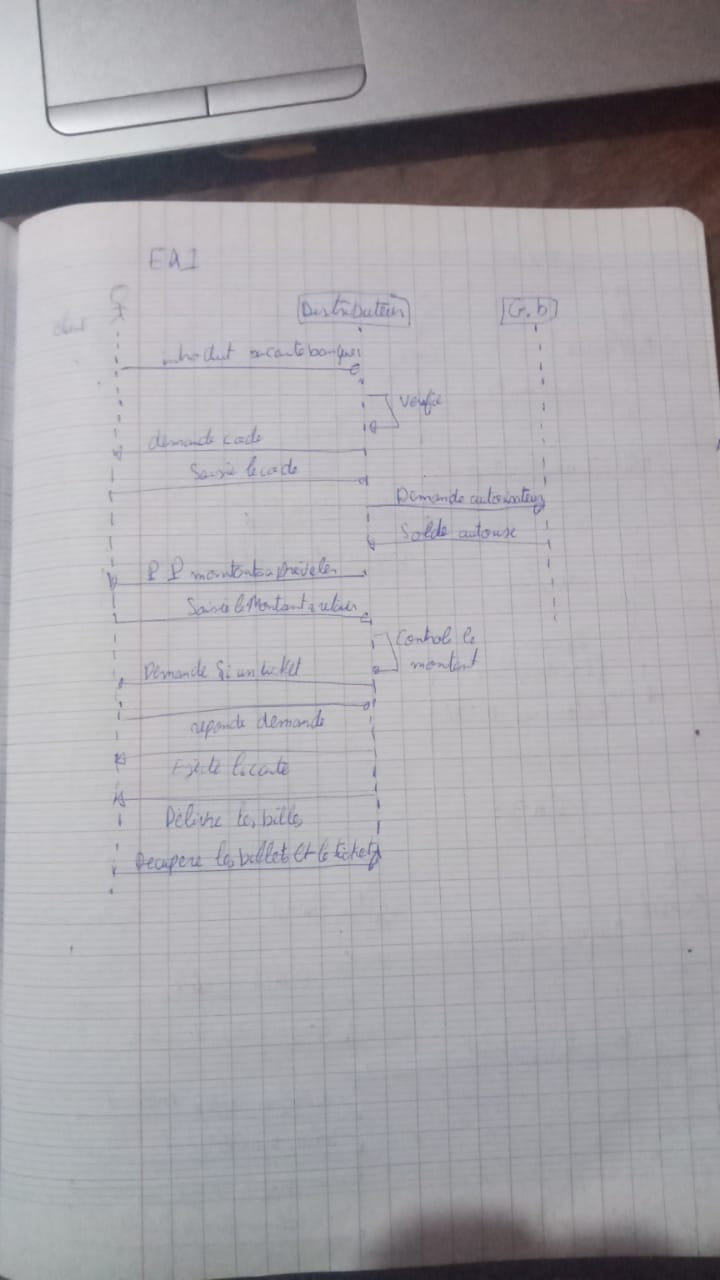 EA1
Distributeur
G.b
Verifie
demande code
Saisie le code
Demande autorisation
Solde autorise
montant a
Saisie le Montant a retirer
Controle le
montant
Demande Si un ticket
reponde demande
Ejecte la carte
Délivre les billes
Recupere les billets Et le ticket